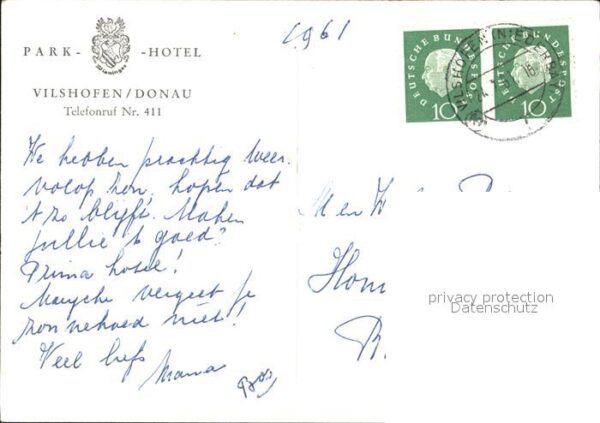 1961
PARK-
-HOTEL
Wieninger
VILSHOFEN/DONAU
Telefonruf Nr. 411
DEUTSCHE BUNDESPOST
10
DEUTSCHE BUNDESPOST
10
VILSHOFEN (NIEDERBAY
We hebben prachtig weer.
volop zon, hopen dat
't zo blijft. Maken
jullie 't goed?
Prima hotel!
Marijche vergeet je
zonnehoed niet!
Veel liefs
Mama
M en
privacy protection
Datenschutz